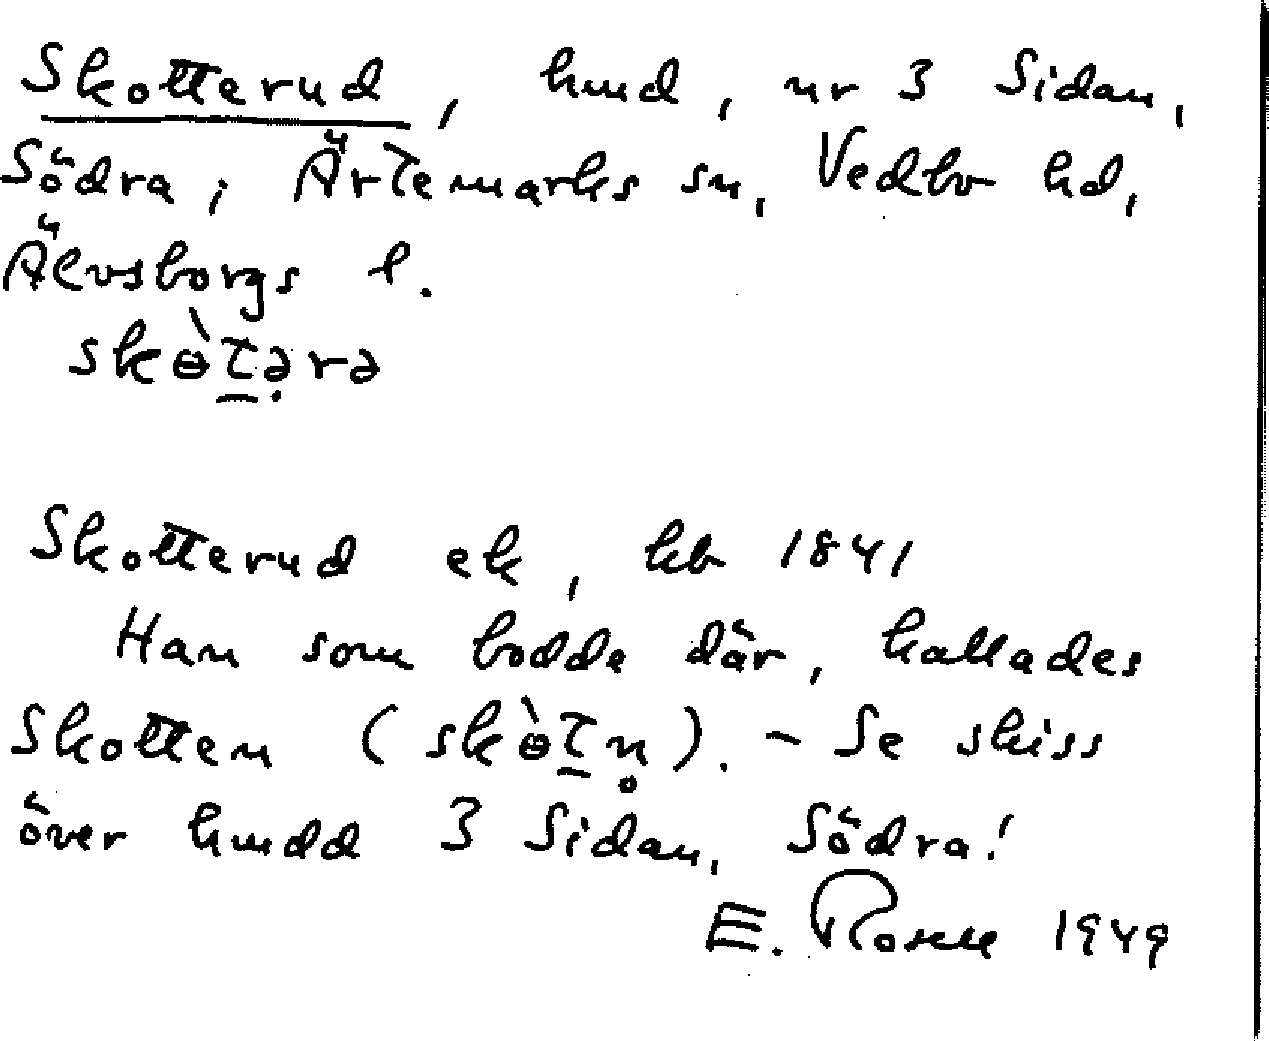 Skotterud, hmd, nr 3 Sidan,
Södra; Ärtemarks sn, Vedbo hd,
Älvsborgs l.
skɵ̀t̲ə̣rə
Skotterud ek, kb 1841
Han som bodde där, kallades
Skotten (skɵ̀t̲n̥). - Se skiss
över hmdd 3 Sidan, Södra!
E. Rosell 1949